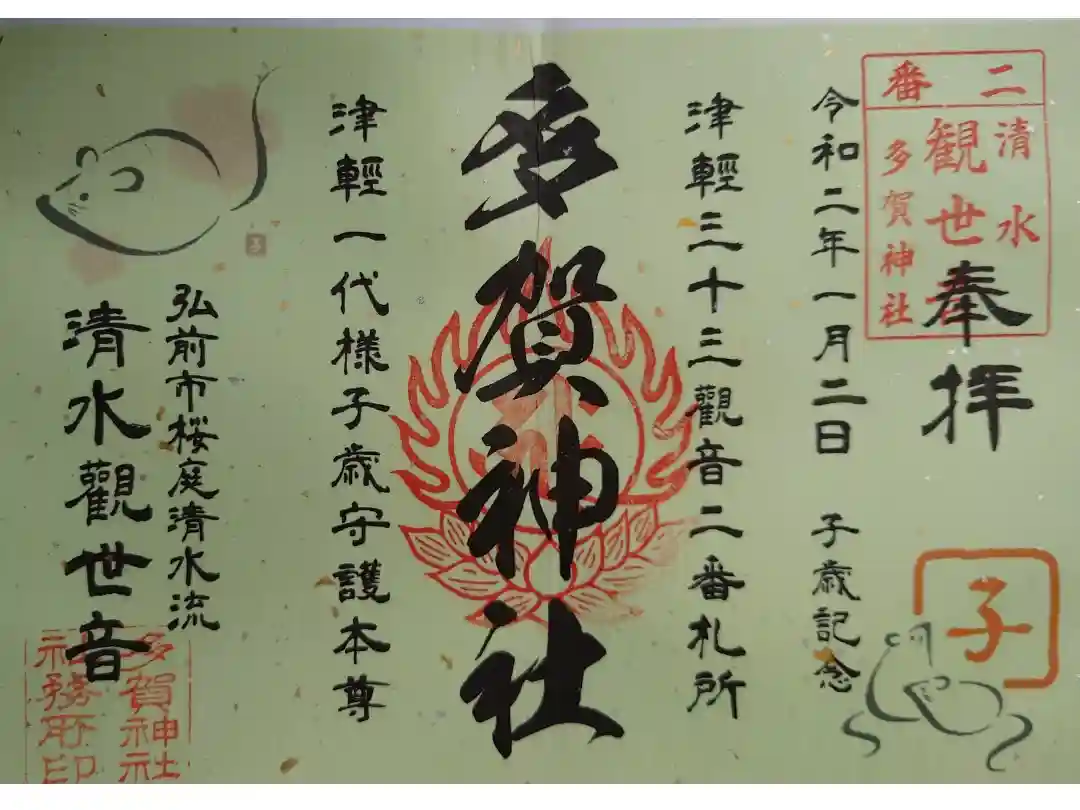 二番
清水
観世
多賀神社
奉拝
令和二年一月二日 子歳記念
子
津輕三十三觀音二番札所
多賀神社
津輕一代様子歳守護本尊
弘前市桜庭清水流
清水觀世音
多賀神社
社務所印